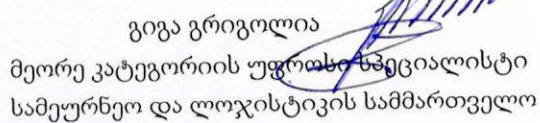 გიგა გრიგოლია
მეორე კატეგორიის უფროსი სპეციალისტი
სამეურნეო და ლოჯისტიკის სამმართველო